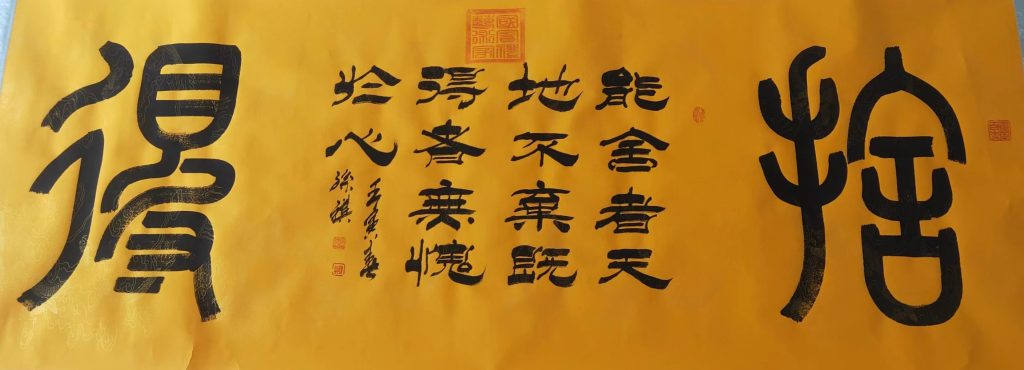 捨
能舍者天
地不棄既
得者無愧
於心
壬寅春
得